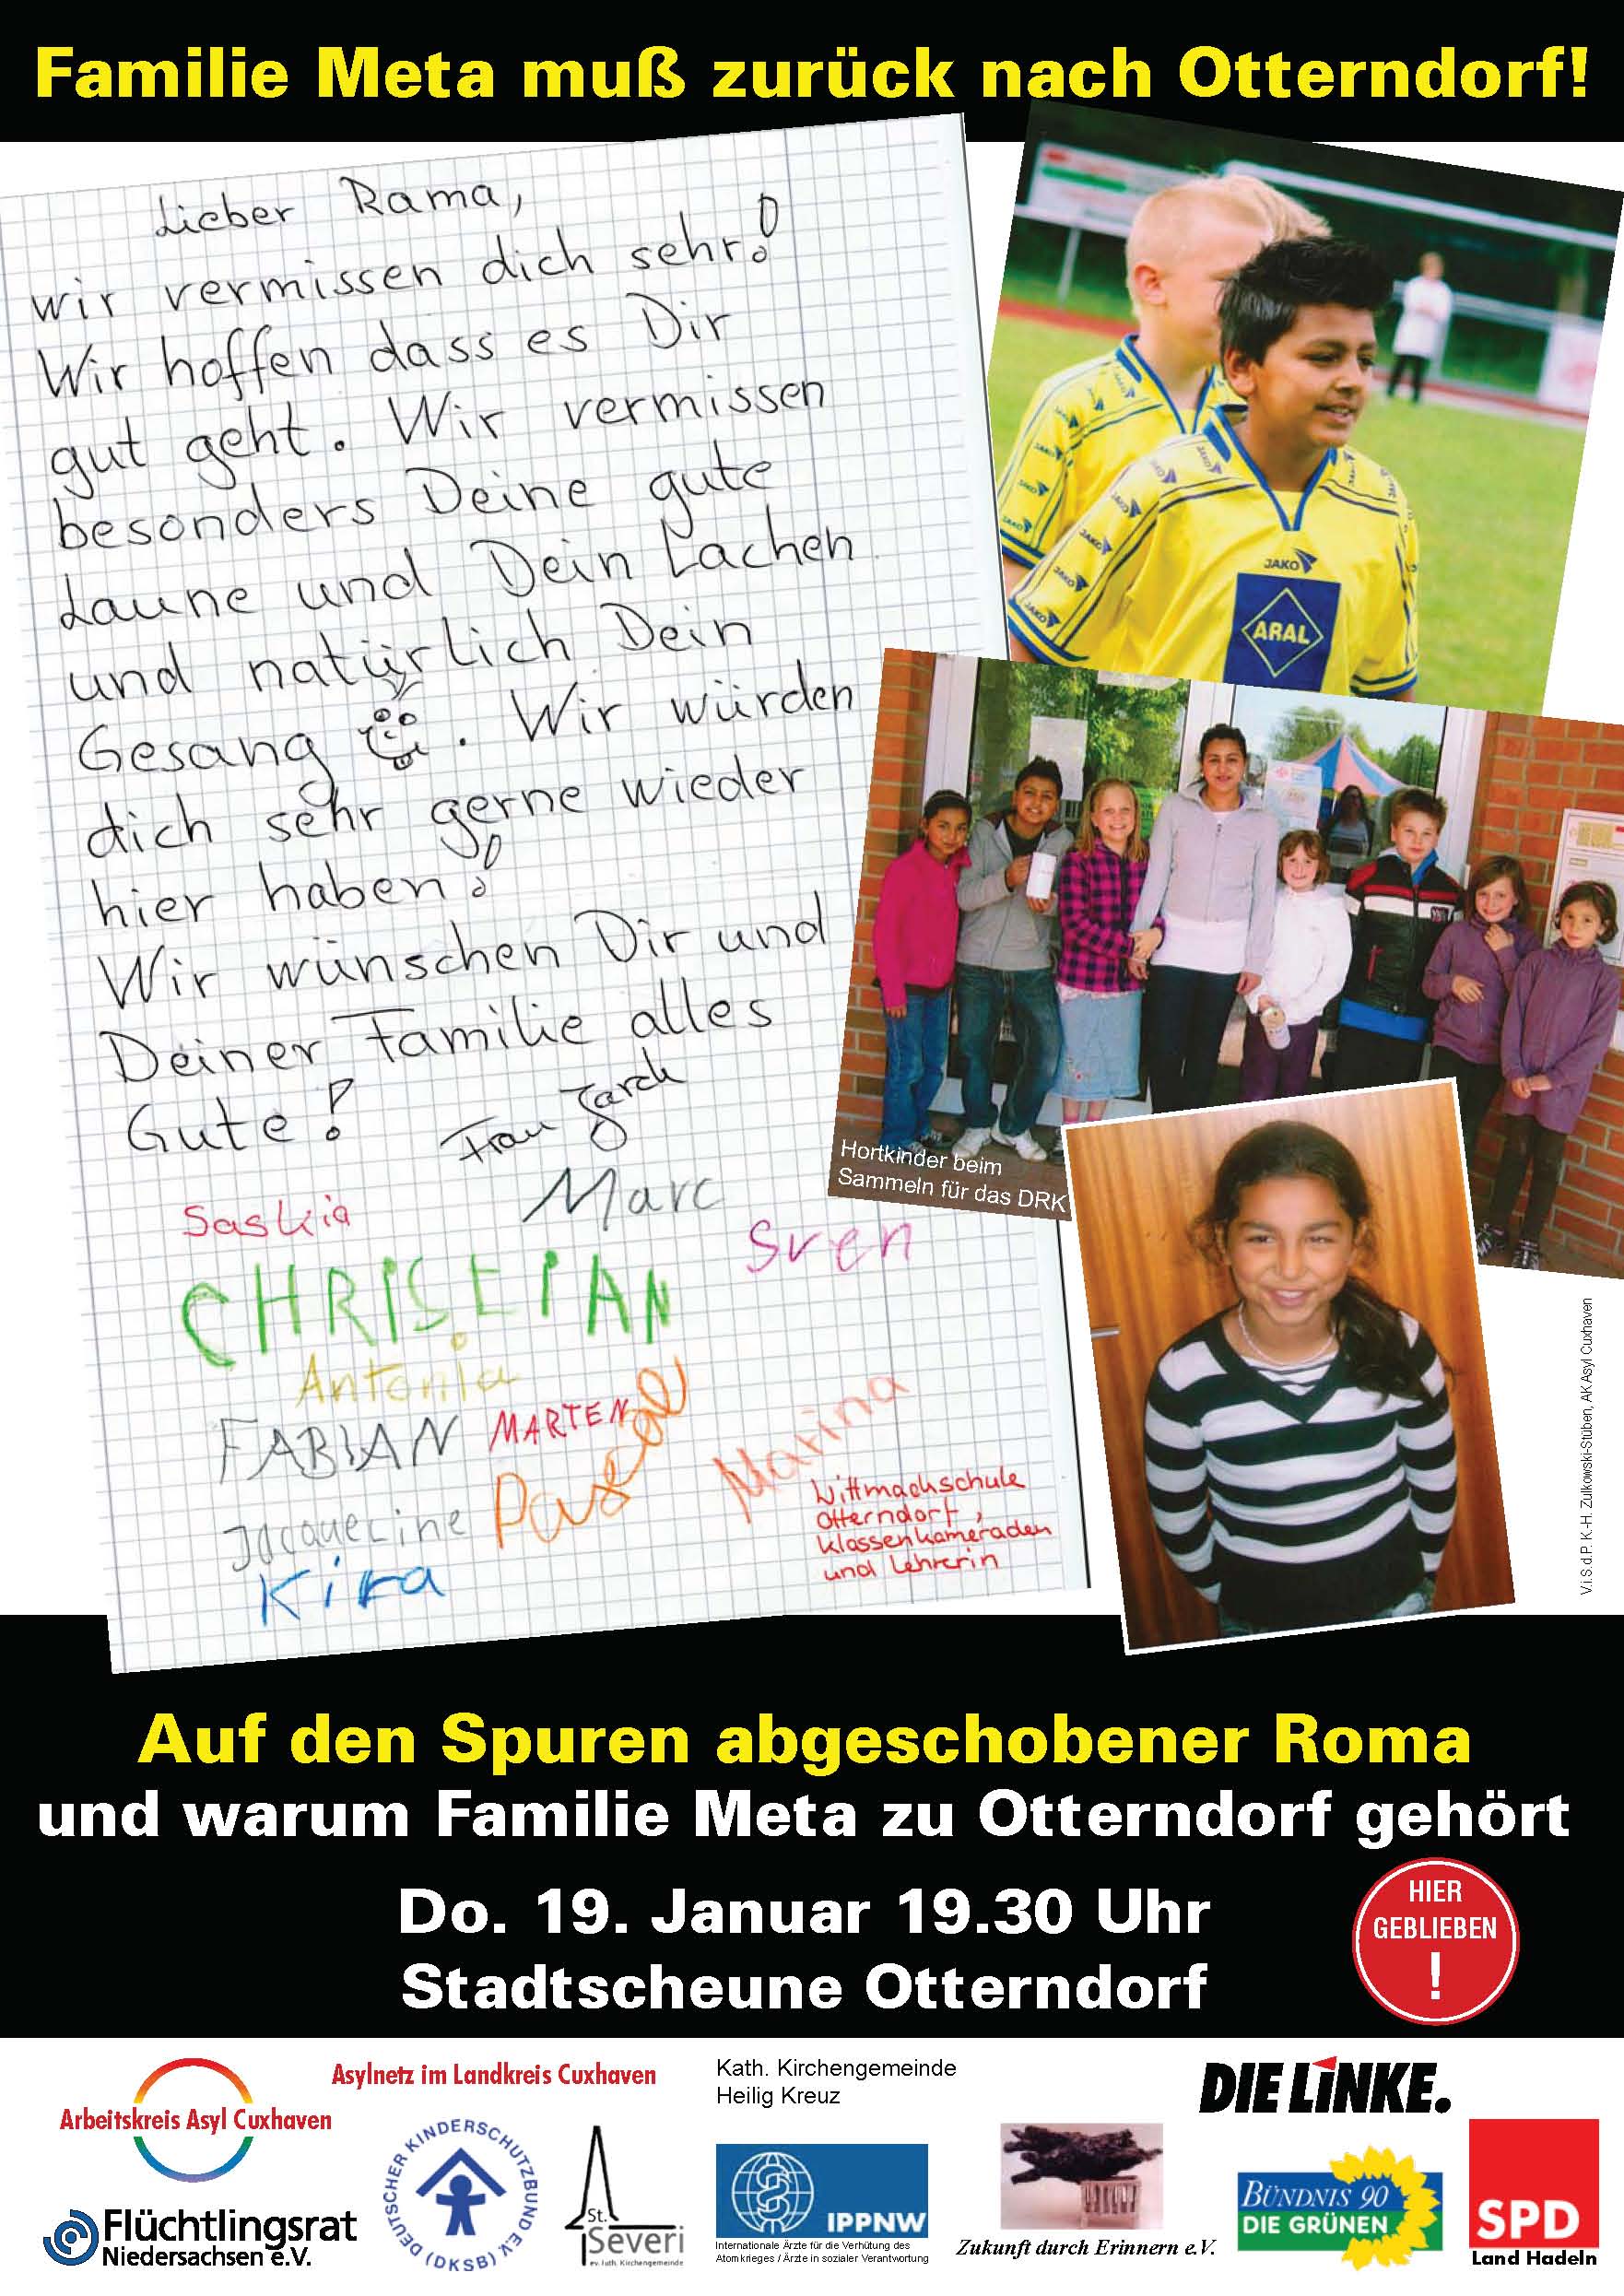 Familie Meta muß zurück nach Otterndorf!
Lieber Rama,
wir vermissen dich sehr!
Wir hoffen dass es Dir
gut geht. Wir vermissen
besonders Deine gute
Laune und Dein Lachen
und natürlich Dein
Gesang. Wir würden
dich sehr gerne wieder
hier haben!
Wir wünschen Dir und
Deiner Familie alles
Gute!
Frau Jarck
Saskia
Marc
Sven
CHRISTIAN
Antonia
FABIAN
MARTEN
Pascal
Marina
Jacqueline
Kira
Wittmackschule
Otterndorf,
Klassenkameraden
und Lehrerin
JAKO
ARAL
Hortkinder beim
Sammeln für das DRK
V.i.S.d.P. K.-H. Zulkowski-Stüben, AK Asyl Cuxhaven
Auf den Spuren abgeschobener Roma
und warum Familie Meta zu Otterndorf gehört
Do. 19. Januar 19.30 Uhr
Stadtscheune Otterndorf
HIER
GEBLIEBEN
!
Arbeitskreis Asyl Cuxhaven
Asylnetz im Landkreis Cuxhaven
Kath. Kirchengemeinde
Heilig Kreuz
DIE LINKE.
Flüchtlingsrat
Niedersachsen e.V.
DEUTSCHER KINDERSCHUTZBUND E.V.
(DKSB)
St.
Severi
ev. luth. Kirchengemeinde
IPPNW
Internationale Ärzte für die Verhütung des
Atomkrieges / Ärzte in sozialer Verantwortung
Zukunft durch Erinnern e.V.
BÜNDNIS 90
DIE GRÜNEN
SPD
Land Hadeln